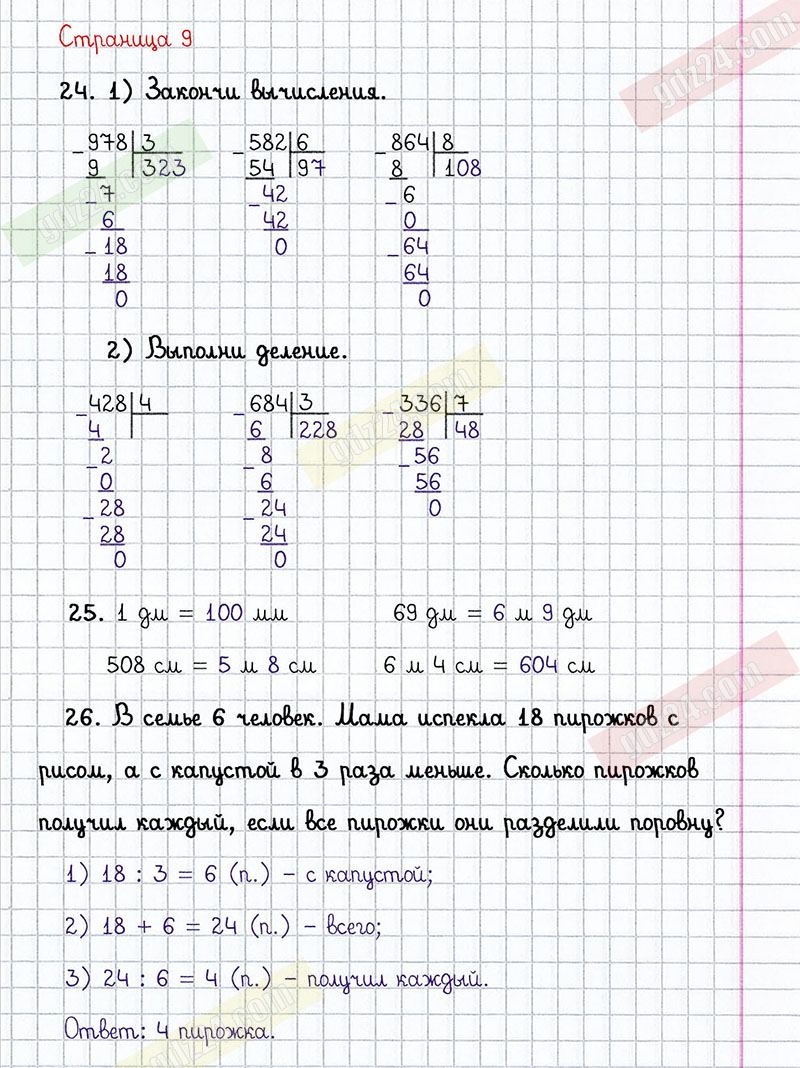 Страница 9
24. 1) Закончи вычисления.
978 3 582 6 864 8
9 323 54 97 8 108
7 42 6
6 42 0
18 0 64
18 64
0 0
2) Выполни деление.
428 4 684 3 336 7
4 6 228 28 48
2 8 56
0 6 56
28 24 0
28 24
0 0
25. 1 дм = 100 мм 69 дм = 6 м 9 дм
508 см = 5 м 8 см 6 м 4 см = 604 см
26. В семье 6 человек. Мама испекла 18 пирожков с
рисом, а с капустой в 3 раза меньше. Сколько пирожков
получил каждый, если все пирожки они разделили поровну?
1) 18 : 3 = 6 (п.) – с капустой;
2) 18 + 6 = 24 (п.) – всего;
3) 24 : 6 = 4 (п.) – получил каждый.
Ответ: 4 пирожка.
gdz24.com
gdz24.com
gdz24.com
gdz24.com
gdz24.com